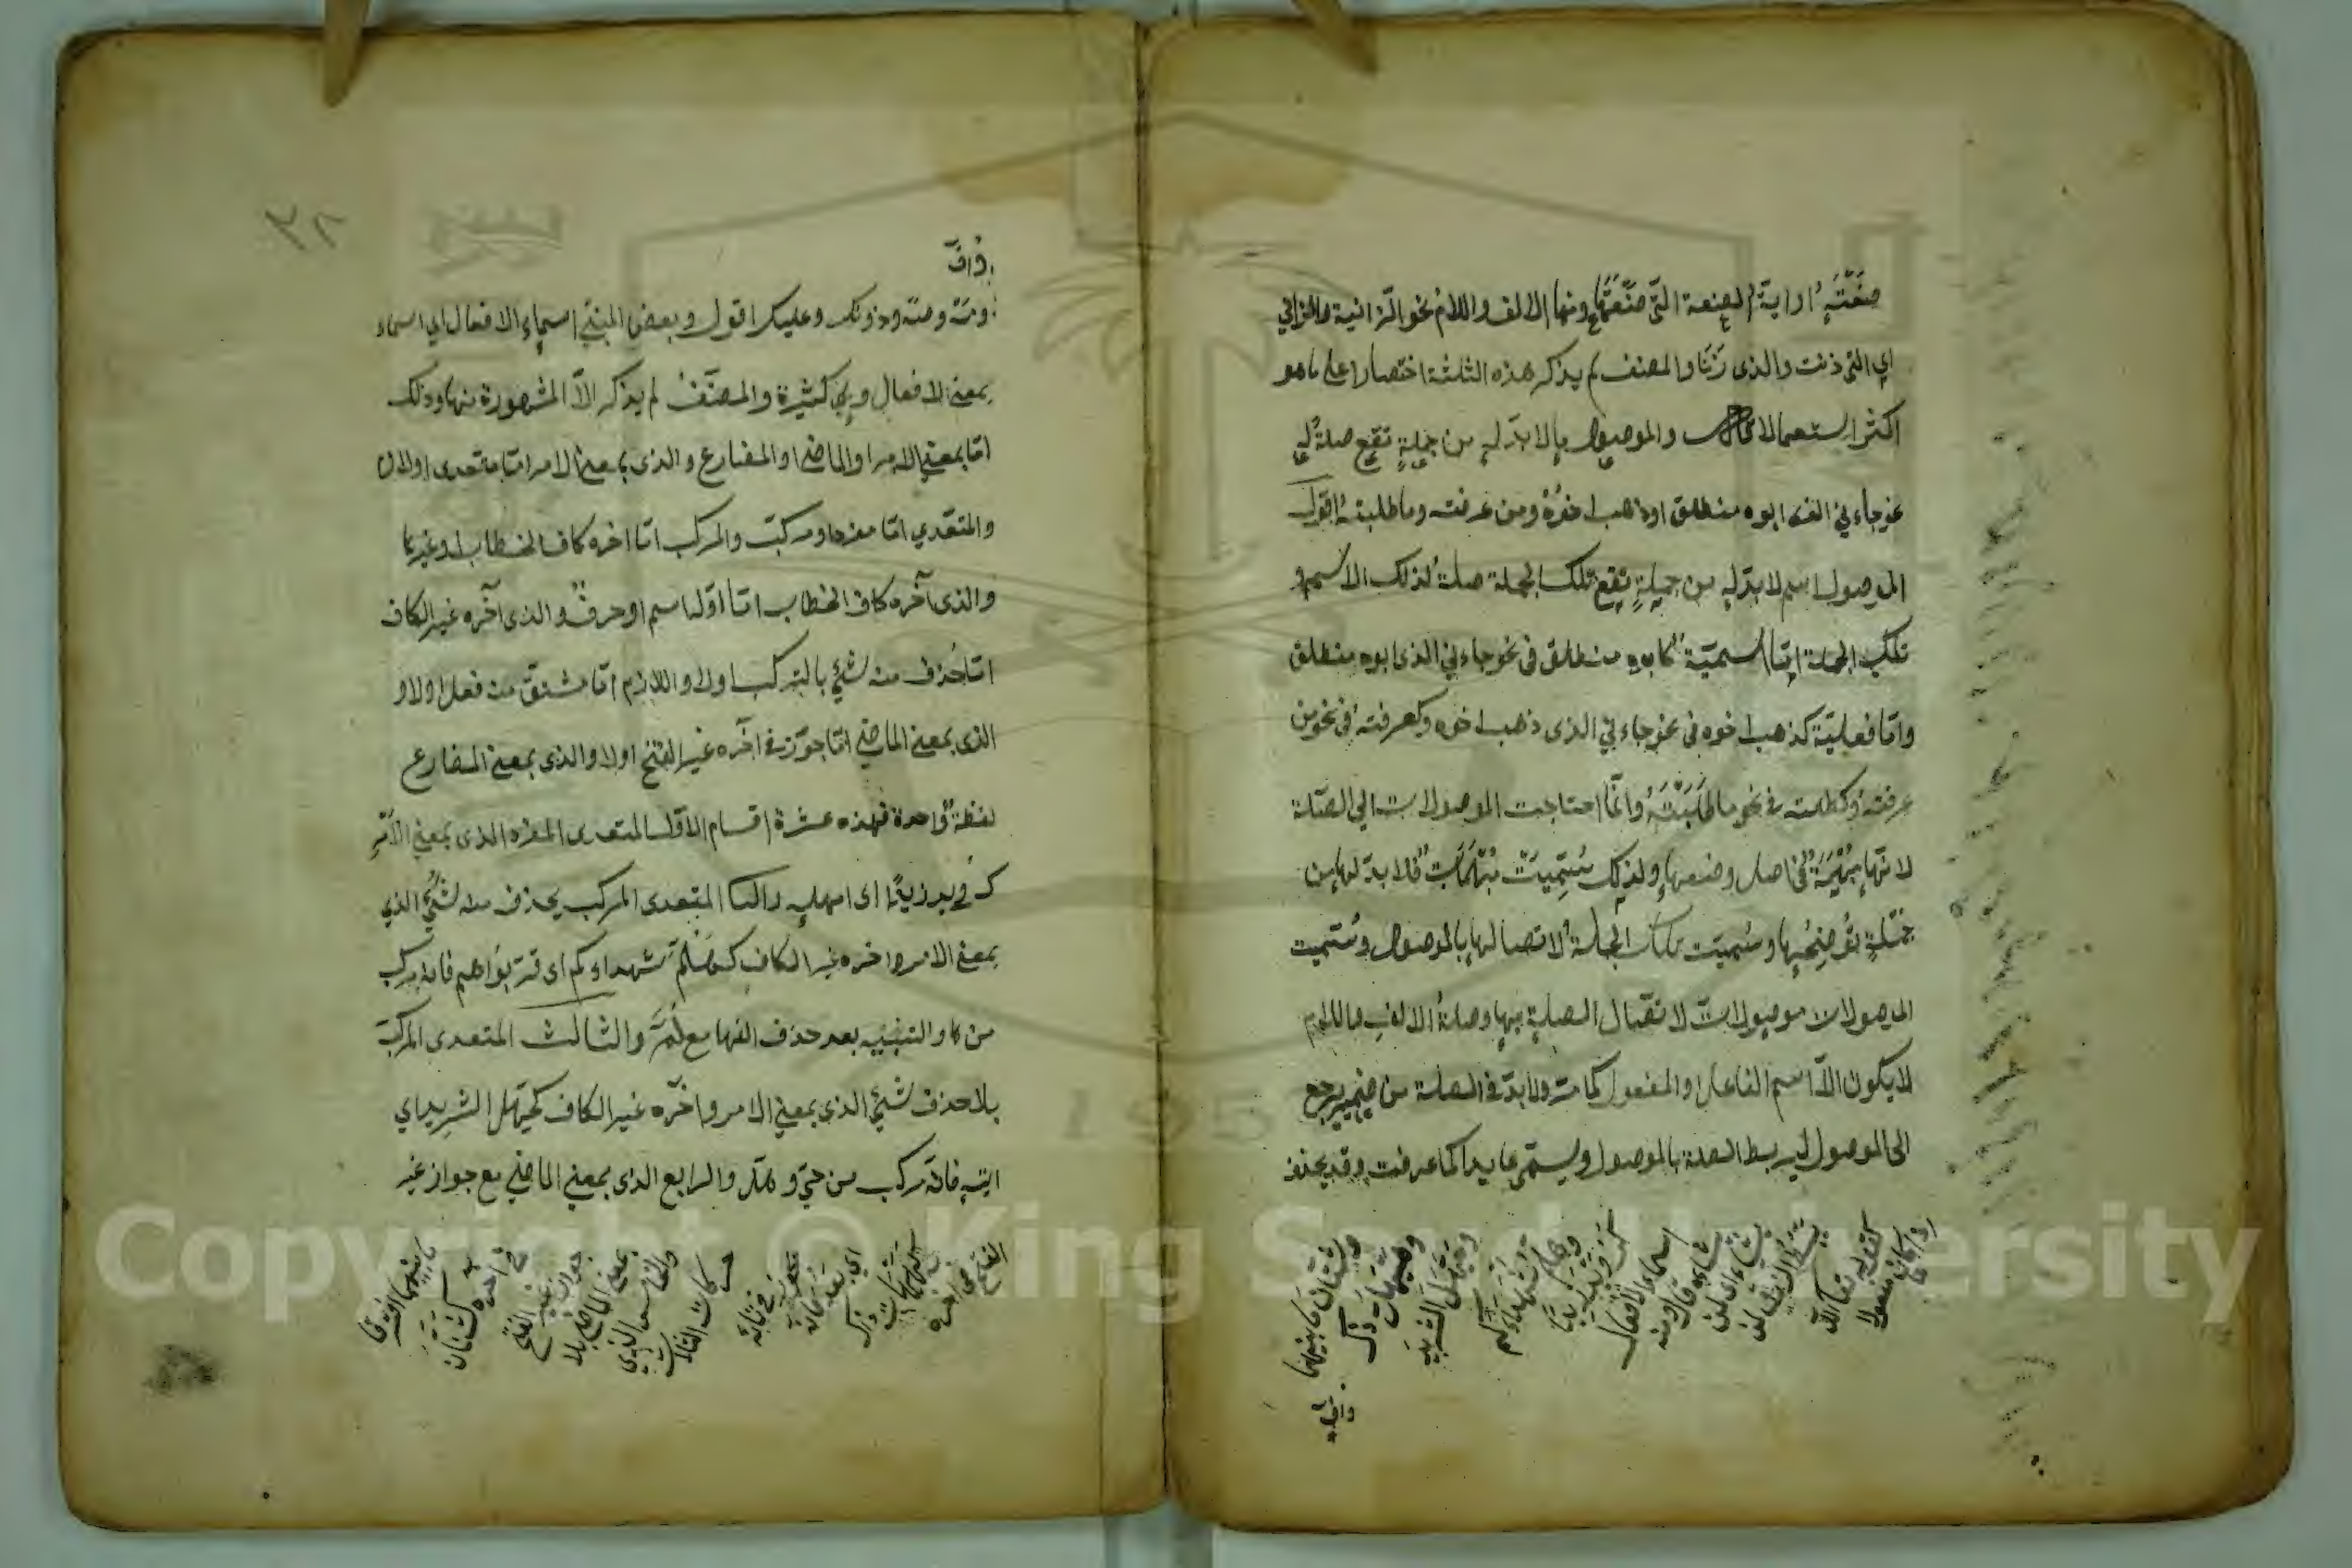 صنعته او اية الصنعة التي صنعتها ومنها الالف واللام نحو الزانية والزاني
اي التي زنت والذي زنا والمصنف لم يذكر هذه الثلثة اختصارا على ما هو
اكثر استعمالا قال والموصول ما لا بد له من جملة تقع صلة له
نحو جاءني الذي ابوه منطلق او ذهب اخوه ومن عرفته وما طلبته اقول
الموصول اسم لا بد له من جملة تقع تلك الجملة صلة لذلك الاسم و
تلك الجملة اما اسمية كابوه منطلق في نحو جاءني الذي ابوه منطلق
واما فعلية كذهب اخوه في نحو جاءني الذي ذهب اخوه وكعرفته في نحو من
عرفته وكطلبته في نحو ما طلبته وانما احتاجت الموصولات الى الصلة
لانها مبهمة في اصل وضعها ولذلك سميت مبهمات فلا بد لها من
جملة توضحها وسميت تلك الجملة لاتصالها بالموصول وسميت
الموصولات موصولات لاتصال الصلة بها وصلة الالف واللام
لا يكون الا اسم الفاعل او المفعول كما مر ولا بد في الصلة من ضمير يرجع
الى الموصول ليربط الصلة بالموصول ويسمى عايدا كما عرفت وقد يحذف
اذا كان مفعولا
كقوله تعالى الله
يبسط الرزق لمن
يشاء اي لمن
يشاءه قال ومنه
اسماء الافعال
كرويد زيدا
وهلم شهداءكم
وحيهل الثريد
وهيهات ذاك
وشتان ما بينهما
واف
٣٨
واف
ومه وصه ودونك وعليك اقول وبعض المبني اسماء الافعال اي اسماء
بمعنى الافعال وهي كثيرة والمصنف لم يذكر الا المشهورة منها وذلك
اما بمعنى الامر او الماضي او المضارع والذي بمعنى الامر اما متعدي او لازم
والمتعدي اما مفرد او مركب والمركب اما اخره كاف الخطاب او غيرها
والذي آخره كاف الخطاب اما اوله اسم او حرف والذي آخره غير الكاف
اما حذف منه شئ بالتركيب اولا واللازم اما مشتق من فعل اولا و
الذي بمعنى الماضي اما جوز في اخره غير الفتح اولا والذي بمعنى المضارع
لفظة واحدة فهذه عشرة اقسام الاول المتعدي المفرد الذي بمعنى الامر
كرويد زيدا اي امهله والثاني المتعدي المركب يحذف منه شئ الذي
بمعنى الامر واخره غير الكاف كهلم شهداءكم اي قربوهم فانه مركب
من ها والتنبيه بعد حذف الفها مع لم والثالث المتعدي المركب
بلا حذف شئ الذي بمعنى الامر وآخره غير الكاف كحيهل الثريد اي
ايته فانه مركب من حي وهل والرابع الذي بمعنى الماضي مع جواز غير
الفتح في اخره
كهيهات ذاك
اي بعد فانه
في تائه
حركات الثلث
والخامس الذي
بمعنى الماضي بلا
جواز غير الفتح
في اخره
كشتان
ما بينهما اي افترقا
Copyright © King Saud University